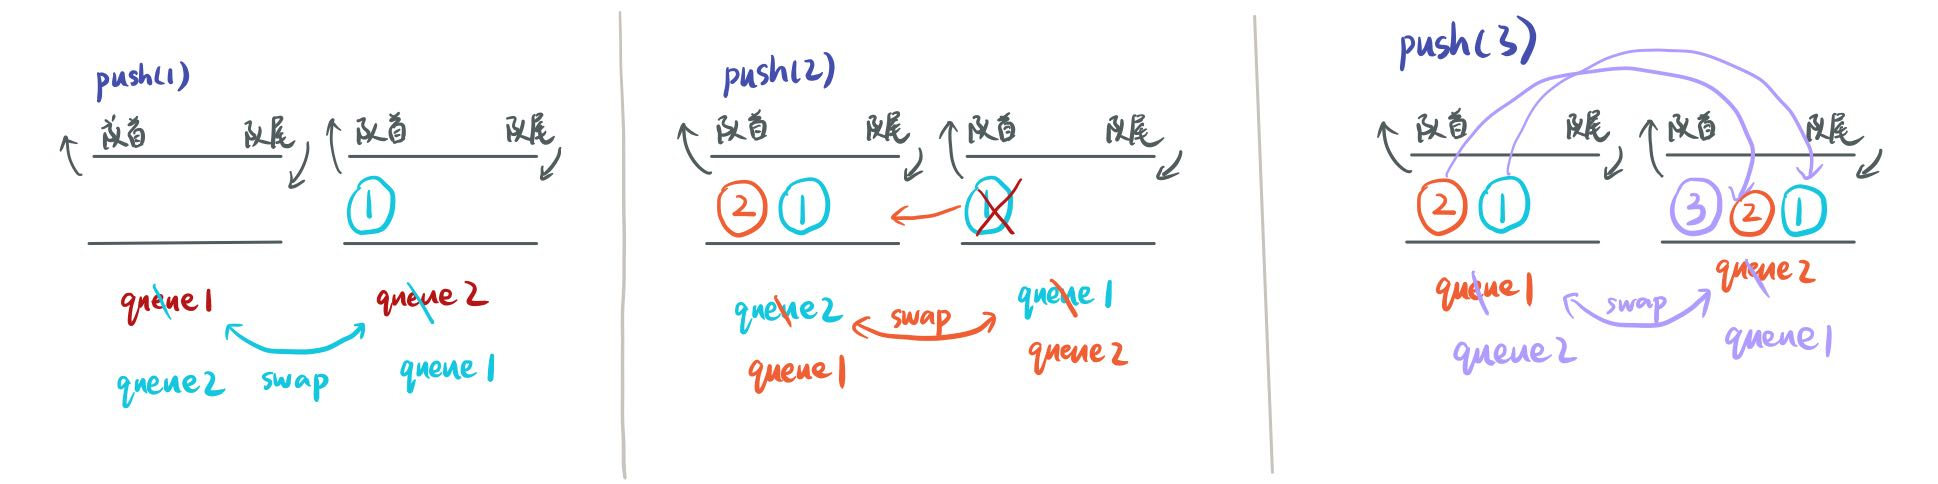 push(1)
队首 队尾 队首 队尾
1
queue1 queue2
swap
queue2 queue1
push(2)
队首 队尾 队首 队尾
2 1 1
queue2 queue1
swap
queue1 queue2
push(3)
队首 队尾 队首 队尾
2 1 3 2 1
queue1 queue2
swap
queue2 queue1